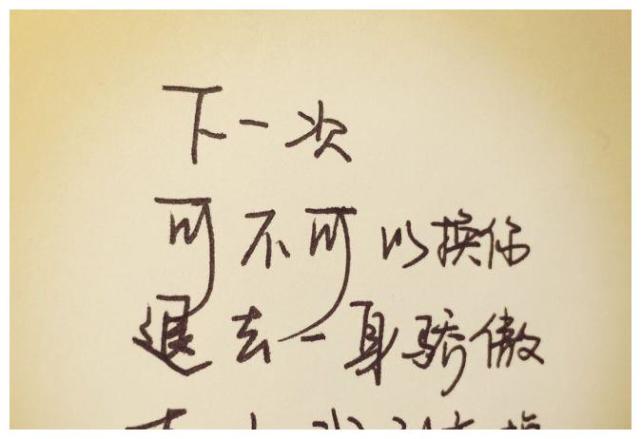 下一次
可不可以换你
退去一身骄傲